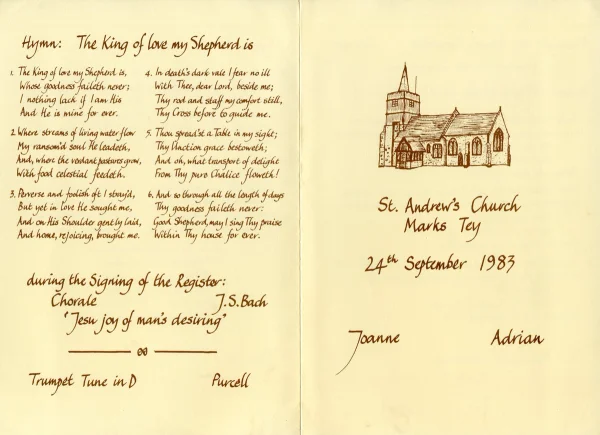 Hymn: The King of love my Shepherd is
1. The King of love my Shepherd is,
Whose goodness faileth never;
I nothing lack if I am His
And He is mine for ever.
2. Where streams of living water flow
My ransom'd soul He leadeth,
And, where the verdant pastures grow,
With food celestial feedeth.
3. Perverse and foolish oft I stray'd,
But yet in love He sought me,
And on His Shoulder gently laid,
And home, rejoicing, brought me.
4. In death's dark vale I fear no ill
With Thee, dear Lord, beside me;
Thy rod and staff my comfort still,
Thy Cross before to guide me.
5. Thou spread'st a Table in my sight;
Thy Unction grace bestoweth;
And oh, what transport of delight
From Thy pure Chalice floweth!
6. And so through all the length of days
Thy goodness faileth never:
Good Shepherd, may I sing Thy praise
Within Thy house for ever.
during the Signing of the Register:
Chorale J.S. Bach
"Jesu joy of man's desiring"
Trumpet Tune in D Purcell
St. Andrew's Church
Marks Tey
24th September 1983
Joanne Adrian